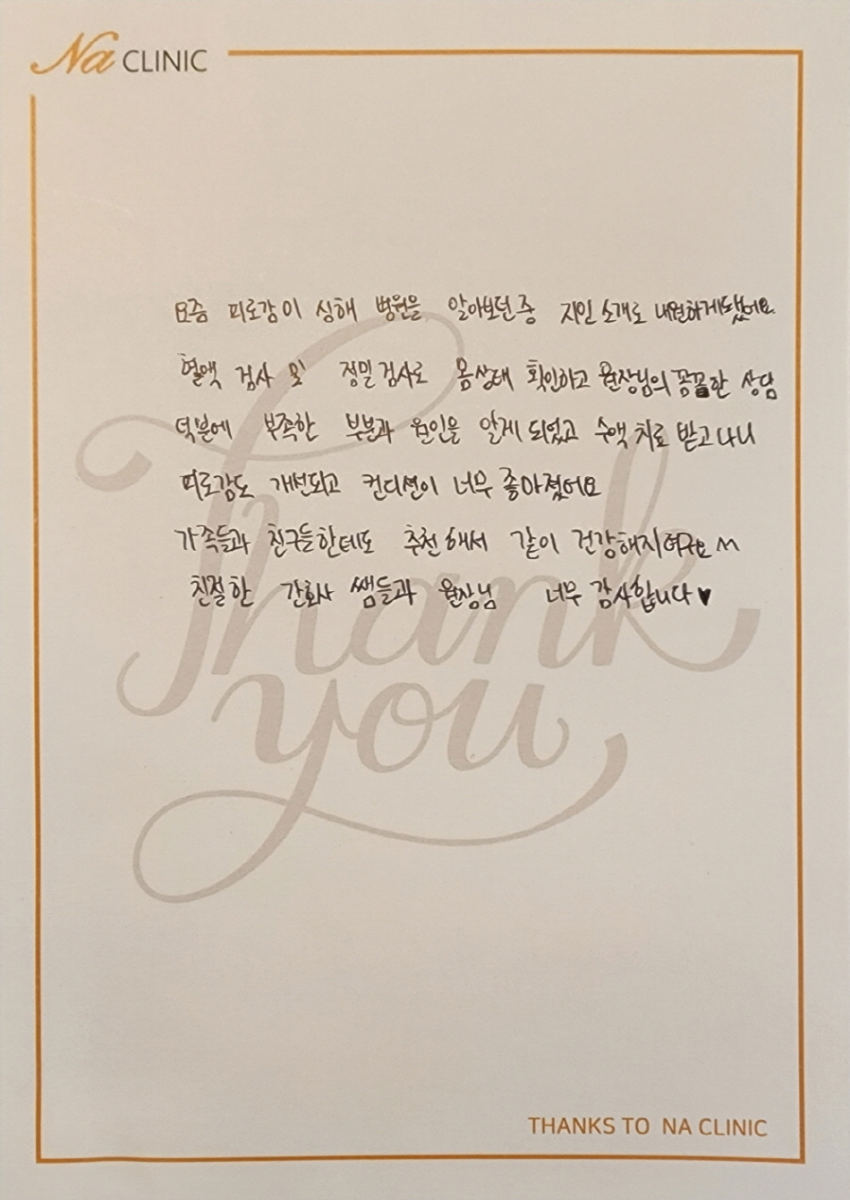 Na CLINIC
요즘 피로감이 심해 병원을 알아보던 중 지인 소개로 내원하게됐어요.
혈액 검사 및 정밀검사로 몸상태 확인하고 원장님의 꼼꼼한 상담
덕분에 부족한 부분과 원인을 알게 되었고 수액 치료 받고나니
피로감도 개선되고 컨디션이 너무 좋아졌어요
가족들과 친구들한테도 추천해서 같이 건강해지려구요 ^^
친절한 간호사 쌤들과 원장님 너무 감사합니다 ♥
Thank
you
THANKS TO NA CLINIC